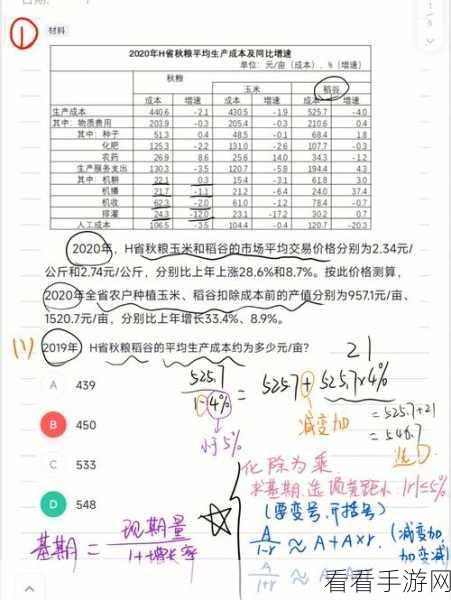 ①
材料
2020年H省秋粮平均生产成本及同比增速
单位：元/亩（成本），%（增速）
秋粮
玉米 稻谷
成本 增速 成本 增速 成本 增速
生产成本 440.6 -2.1 430.5 -1.9 525.7 -4.0
其中：物质费用 203.9 -0.3 205.4 -0.3 210.6 0.4
其中：种子 51.3 0.4 48.5 -0.1 68.4 1.8
化肥 125.3 -2.2 131.0 -2.6 107.7 -0.3
农药 26.9 8.6 25.6 14.0 34.3 -1.2
生产服务支出 130.3 -3.5 120.7 -5.8 194.4 4.3
其中：机耕 22.1 0.3 15.4 -3.1 61.8 3.0
机播 21.7 -1.1 21.2 -6.4 24.0 37.4
机收 62.3 -2.0 61.0 -1.2 78.4 -0.7
排灌 24.3 -12.0 23.1 -17.2 30.2 0.7
人工成本 106.5 -3.5 104.4 -0.4 120.7 -20.3
2020年，H省秋粮玉米和稻谷的市场平均交易价格分别为2.34元/
公斤和2.74元/公斤，分别比上年上涨28.6%和8.7%。按此价格测算，
2020年全省农户种植玉米、稻谷扣除成本前的产值分别为957.1元/亩、
1520.7元/亩，分别比上年增长33.4%、8.9%。
(1) 2019年，H省秋粮稻谷的平均生产成本约为多少元/亩？
21
A 439
B 450
C 533
D 548
525.7
1-4%
= 525.7+525.7×4%
=525.7+21
=546.7
选D.
减变加
小于5%
化除为乘
求基期,选项差距小 |r|≤5%
(要变号,开括号)
A
1-r ≈ A+A×r. (减变加,
加变减)
A
1+r ≈ A-A×r
基期 = 现期量
1+增长率
看看手游网